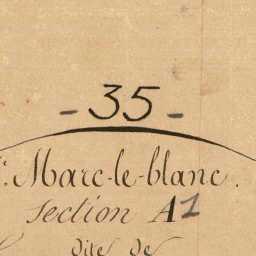 - 35 -
Marc-le-blanc.
Section A1
dite de